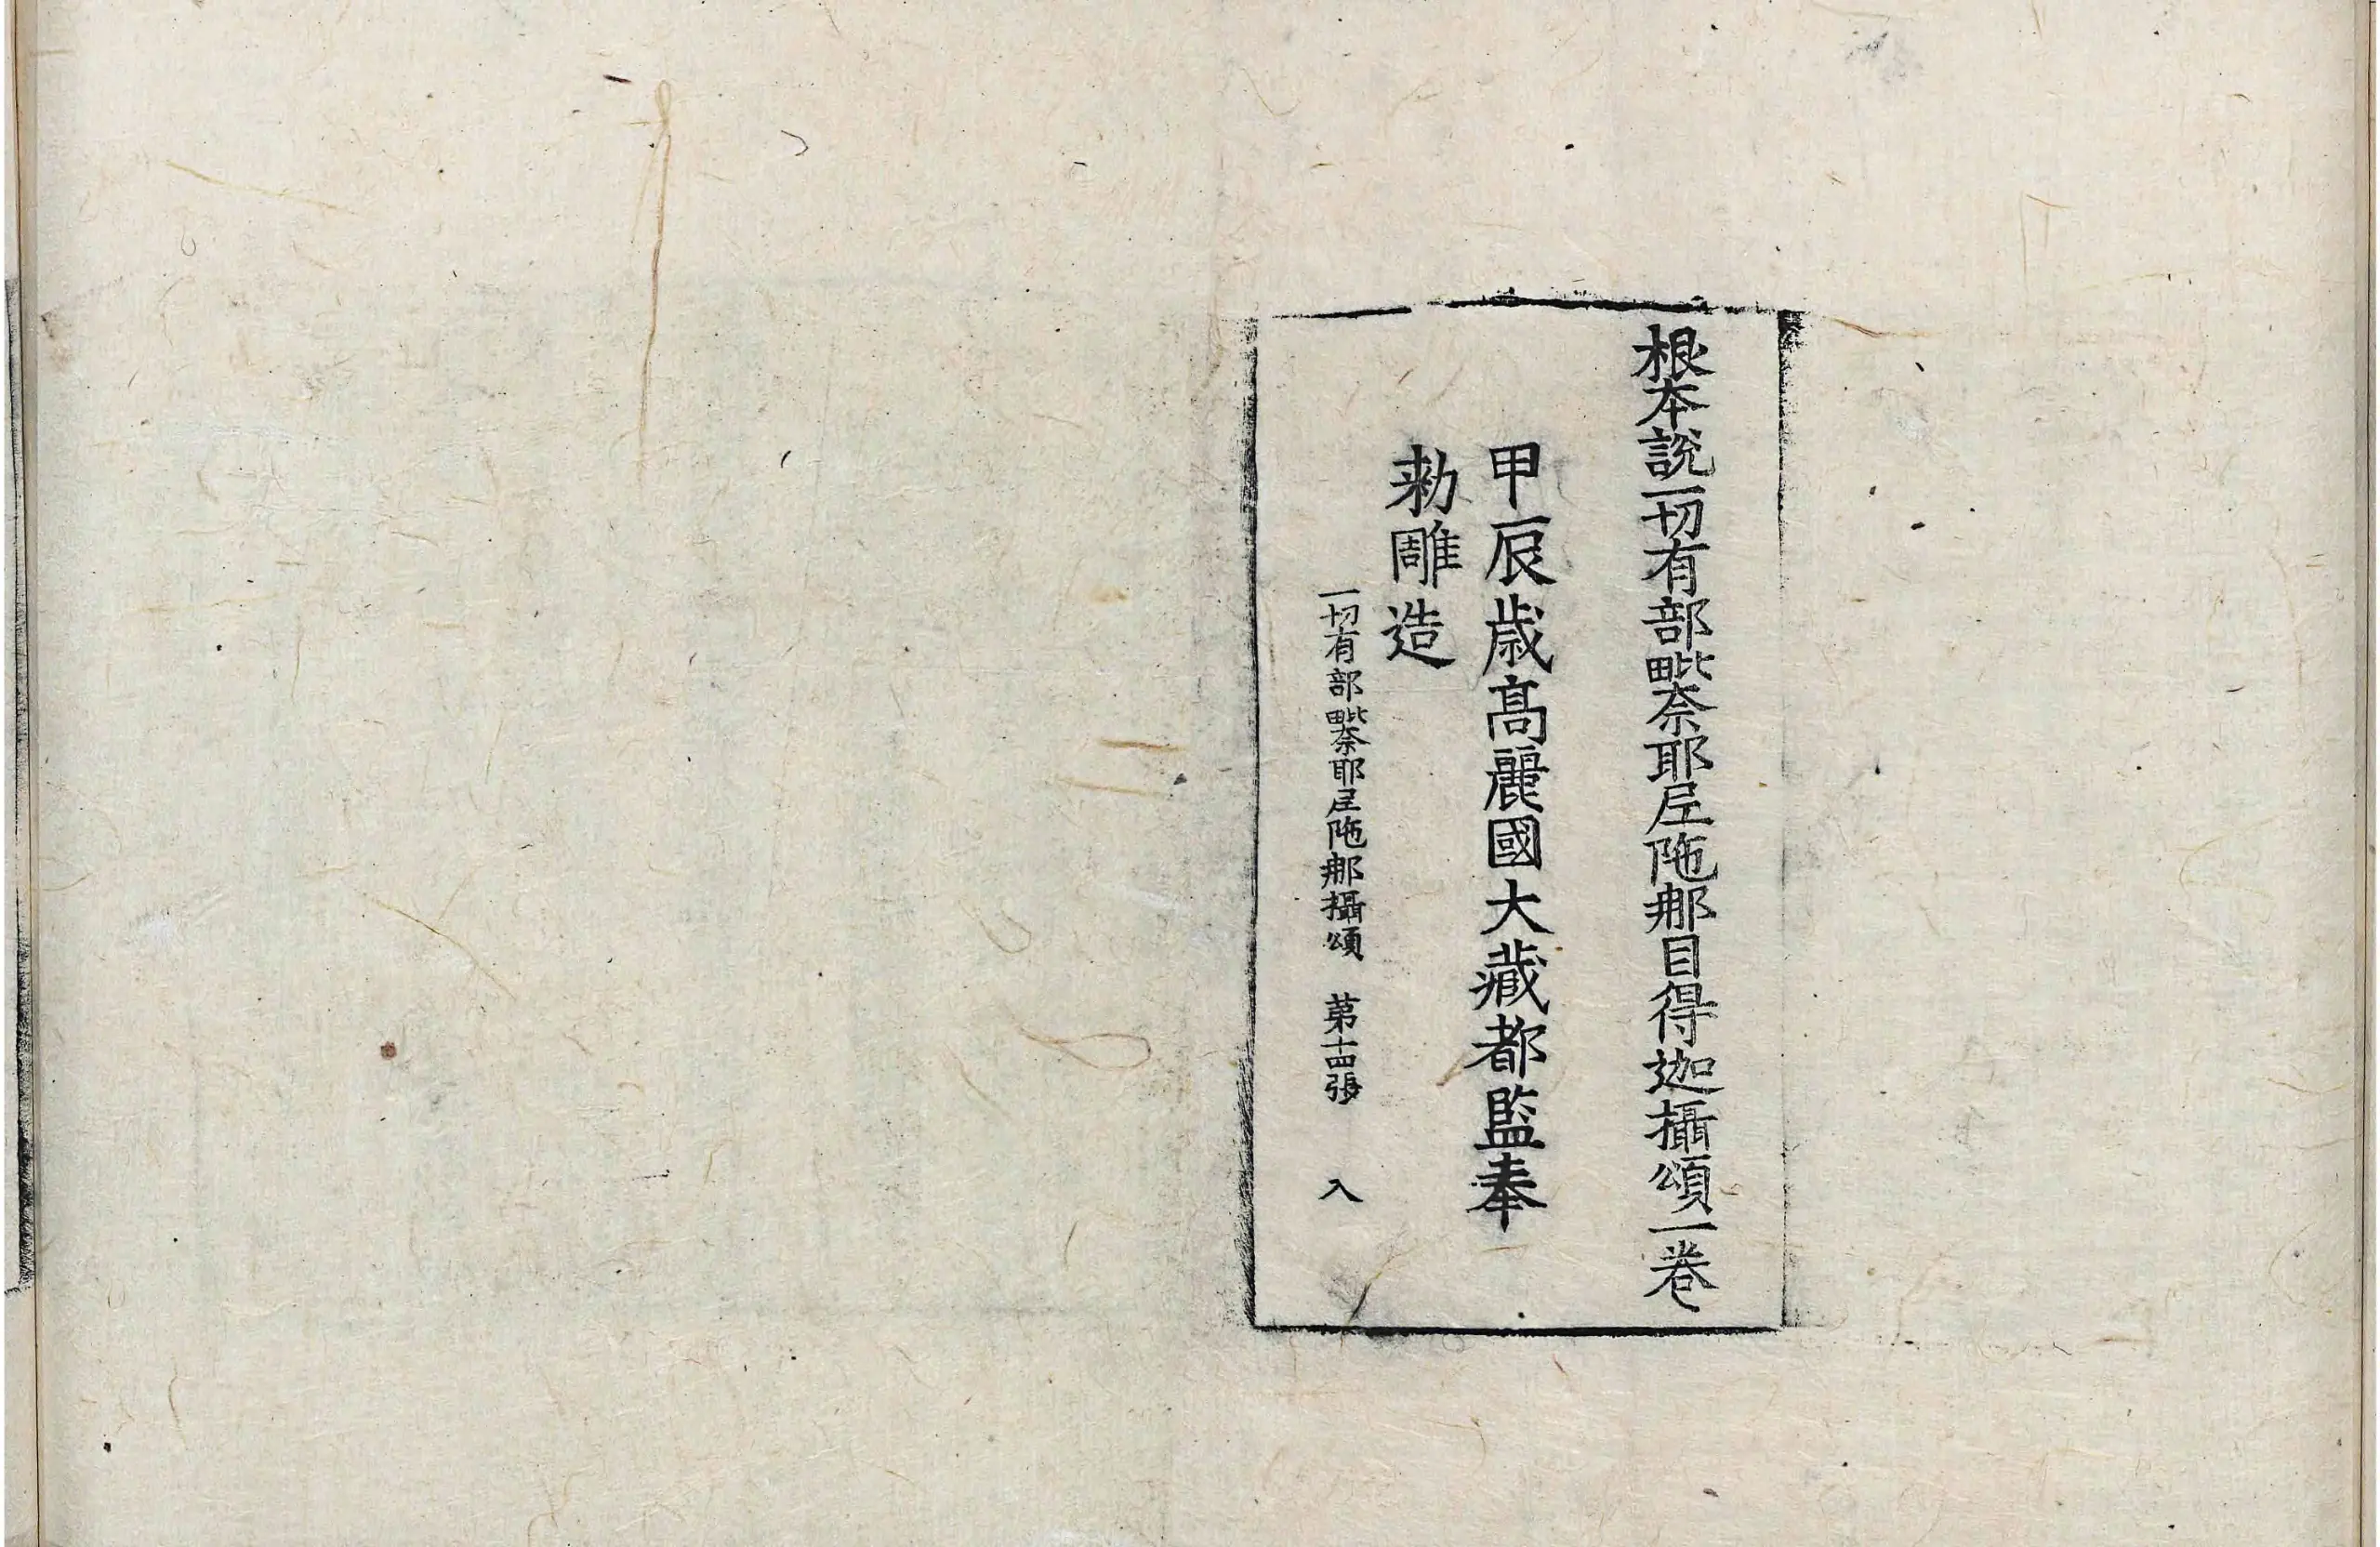 根本說一切有部毗奈耶尼陁那目得迦攝頌一卷
甲辰歲高麗國大藏都監奉
勑雕造
一切有部毗奈耶尼陁那攝頌 第十四張 入